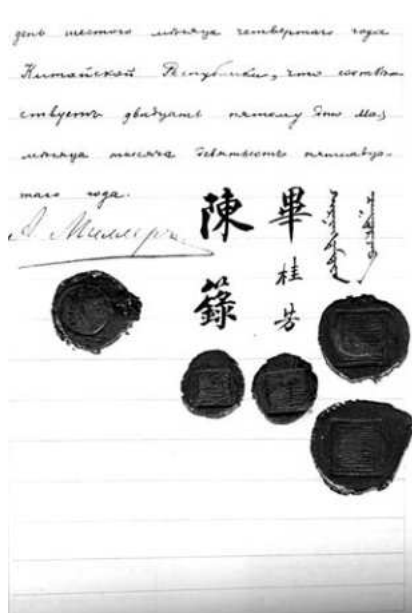 день шестого мѣсяца четвертаго года
Китайской Республики, что соотвѣт-
ствуетъ двадцать пятому дню Мая
мѣсяца тысяча девятьсотъ пятнадца-
таго года.
А. Миллеръ.
畢桂芳
陳籙